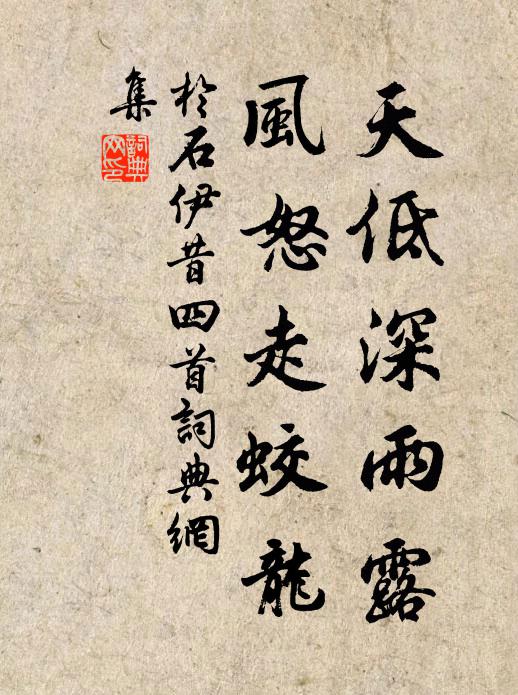 天低深雨露
風怒走蛟龍
於石伊昔四首詞典網
集
詞典
网印